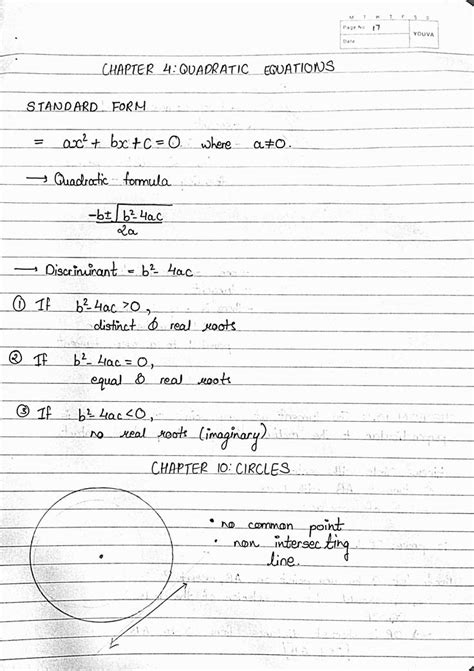 M T W T F S S
Page No. 17
Date
YOUVA
CHAPTER 4: QUADRATIC EQUATIONS
STANDARD FORM
= ax² + bx + c = 0 where a ≠ 0.
→ Quadratic formula
-b± √b²-4ac
2a
→ Discriminant = b² - 4ac
① If b²-4ac > 0,
distinct & real roots
② If b² - 4ac = 0,
equal & real roots
③ If b²-4ac < 0,
no real roots (imaginary)
CHAPTER 10: CIRCLES
• no common point
• non intersecting
line.